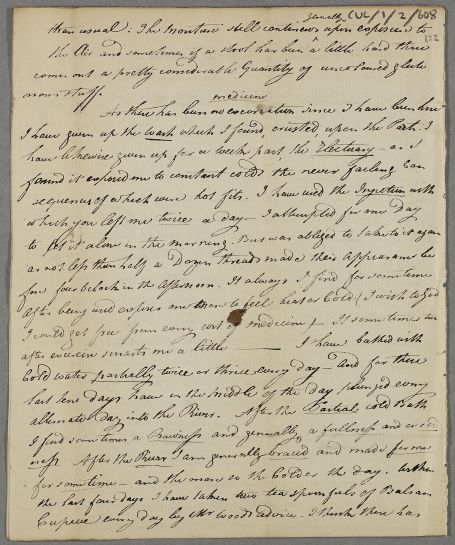 generally CUL/1/2/608
than usual. The Moisture still continues upon exposure to 122
the Air and sometimes if a stool has been a little hard there
comes out a pretty considerable Quantity of uncoloured glute
nous stuff.
medicine
As there has been no excoriation since I have been here
I have given up the wash which I found, crusted, upon the Parts. I
have likewise given up for a week past the Electuary – as I
found it exposed me to constant colds the never failing Con
sequences of which were hot fits. I have used the Injection with
which you left me twice a day – I attempted for one Day
to let it alone in the morning. But was obliged to take to it again
as not less than half a Dozen threads made their appearance be
fore four oclock in the Afternoon. It always I find for sometime
after being used exposes me to feel heat or Cold (I wish to God
I could get free from every sort of medicine) – It sometimes
after exercise smarts me a little — I have bathed with
Cold water partially twice or thrice every day – And for these
last ten days have in the middle of the day plunged every
alternate day into the River. After the Partial Cold Bath
I find sometimes a Rawness and generally a fullness and
ness After the River I am generally braced and made firm
for some time – and the more so the Colder the day. Within
the last four days I have taken two tea spoonfuls of Balsam
Capivi every day by Mr Woods advice. I think there has